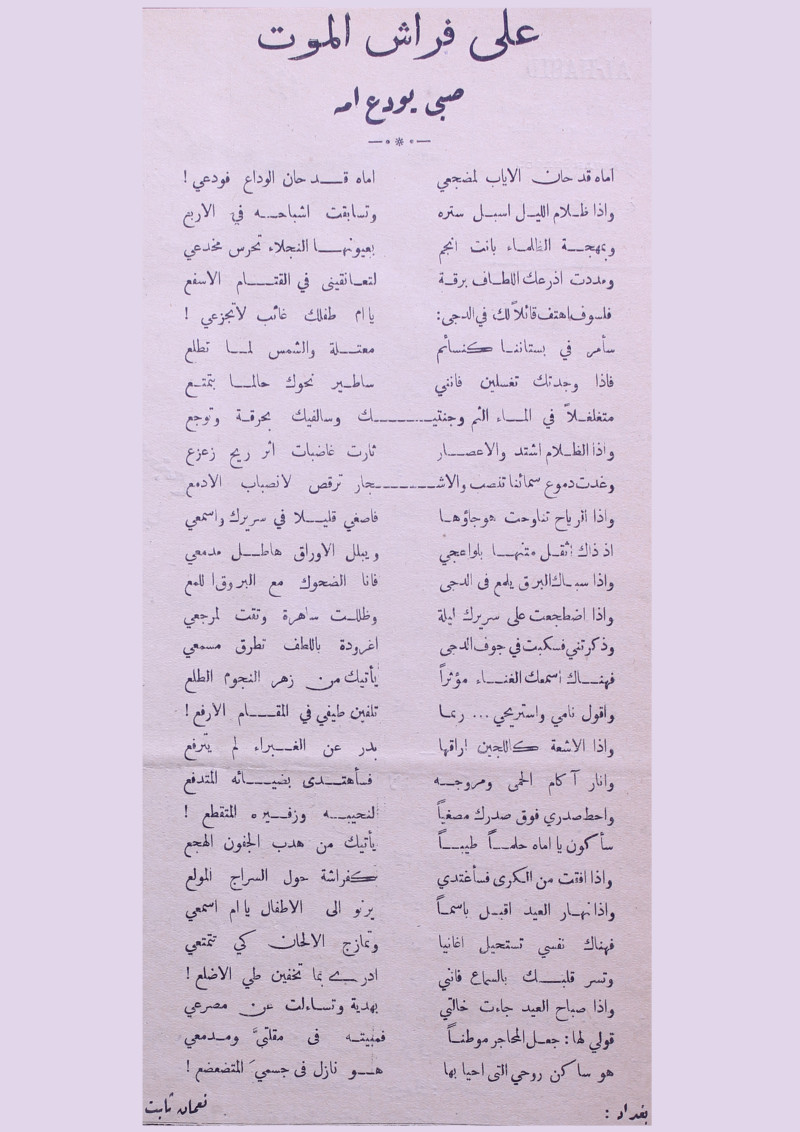 على فراش الموت
صبي يودع امه
اماه قد حان الاياب لمضجعي اماه قد حان الوداع فودعي !
واذا ظلام الليل اسبل ستره وتسابقت اشباحه في الاربع
وبمهجة الظلماء باتت انجم بعيونها النجلاء تحرس مخدعي
ومددت اذرعك اللطاف برقة لتعانقيني في القتام الاسفع
فلسوف اهتف قائلاً لك في الدجى: يا ام طفلك غائب لاتجزعي !
سأمر في بستاننا كنسائم معتلة والشمس لما تطلع
فاذا وجدتك تغسلين فانني ساطير نحوك حالما بتمتع
متغلغلاً في الماء الثم وجنتيك وسالفيك بحرقة وتوجع
واذا الظلام اشتد والاعصار ثارت غاضبات اثر ريح زعزع
وغدت دموع سمائنا تنصب والاشجار ترقص لانصباب الادمع
واذا الرياح تناوحت هوجاؤها فاصغي قليلا في سريرك واسمعي
اذ ذاك أثقل متنها بلواعجي ويبلل الاوراق هاطل مدمعي
واذا سباك البرق يلمع في الدجى فانا الضحوك مع البروق اللمع
واذا اضطجعت على سريرك ليلة وظللت ساهرة وتقت لمرجعي
وذكرتني فسكبت في جوف الدجى اغرودة باللطف تطرق مسمعي
فهناك أسمعك الغناء مؤثراً يأتيك من زهر النجوم الطلع
واقول نامي واستريحي ... ربما تلفين طيفي في المقام الارفع !
واذا الاشعة كاللجين اراقها بدر عن الغبراء لم يترفع
وانار آكام الحمى ومروجه فسأهتدى بضيائه المتدفع
واحط صدري فوق صدرك مصغياً لنحيبه وزفيره المتقطع !
سأكون يا اماه حلماً طيباً يأتيك من هدب الجفون الهجع
واذا افقت من الكرى فسأغتدي كفراشة حول السراج المولع
واذا نهار العيد اقبل باسماً يرنو الى الاطفال يا ام اسمعي
فهناك نفسي تستحيل اغانيا وتمازج الالحان كي تتمتعي
وتسر قلبك بالسماع فانني ادرى بما تخفين طي الاضلع !
واذا صباح العيد جاءت خالتي بهدية وتساءلت عن مصرعي
قولي لها : جعل المحاجر موطناً فمبيته في مقلتيَّ ومدمعي
هو ساكن روحي التي احيا بها هو نازل في جسميَ المتضعضع !
بغداد : نعمان ثابت